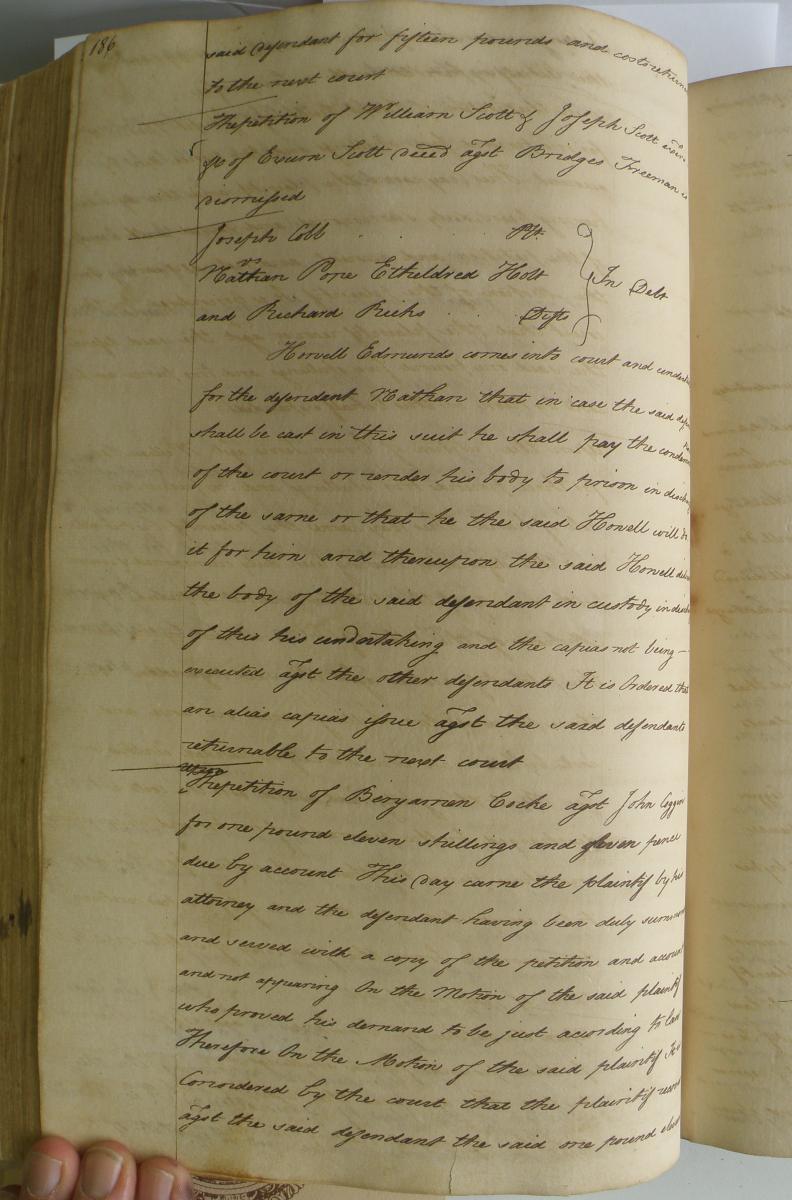 186
said defendant for fifteen pounds and costs return
to the next court
The petition of William Scott & Joseph Scott
of Exum Scott deced agst Bridges Freeman is
dismissed
Joseph Cobb Plt.
vs
Nathan Pope Etheldred Holt
In Debt
and Richard Ricks Defts
Howell Edmunds comes into court and undert
for the defendant Nathan that in case the said def
shall be cast in this suit he shall pay the condem
of the court or render his body to prison in disch
of the same or that he the said Howell will do
it for him and thereupon the said Howell deliv
the body of the said defendant in custody in disch
of this his undertaking and the capias not being –
executed agst the other defendants It is Ordered that
an alias capias issue agst the said defendants
returnable to the next court
The petition of Benjamin Cocke agst John Coggin
for one pound eleven shillings and eleven pence
due by account This day came the plaintif by his
attorney and the defendant having been duly summon
and served with a copy of the petition and account
and not appearing On the Motion of the said plaintif
who proved his demand to be just according to law
Therefore On the Motion of the said plaintif It is
Considered by the court that the plaintif recover
agst the said defendant the said one pound eleve